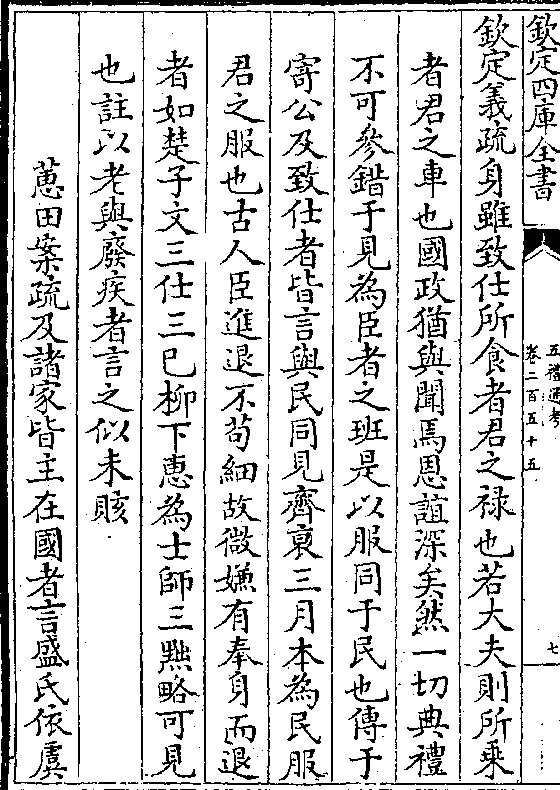 欽定四庫全書
五禮通考
卷二百五十五
七
欽定義疏身雖致仕所食者君之祿也若大夫則所乘
者君之車也國政猶與聞焉恩誼深矣然一切典禮
不可參錯于見為臣者之班是以服同于民也傳于
寄公及致仕者皆言與民同見齊衰三月本為民服
君之服也古人臣進退不苟細故微嫌有奉身而退
者如楚子文三仕三已柳下惠為士師三黜略可見
也註以老與廢疾者言之似未賅
蕙田案疏及諸家皆主在國者言盛氏依虞